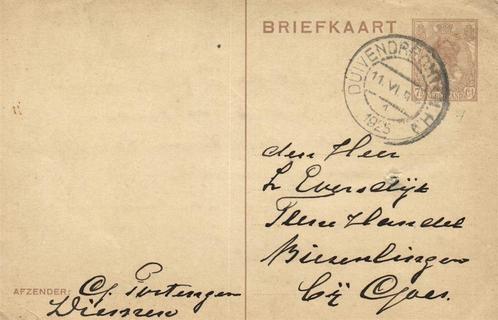 BRIEFKAART
DUIVENDRECHT
11.VI.9
1925
7½
den Heer
L. Eversdijk
Handel
Biezelingen
bij Goes.
AFZENDER: Cs. Portengen
Diemen